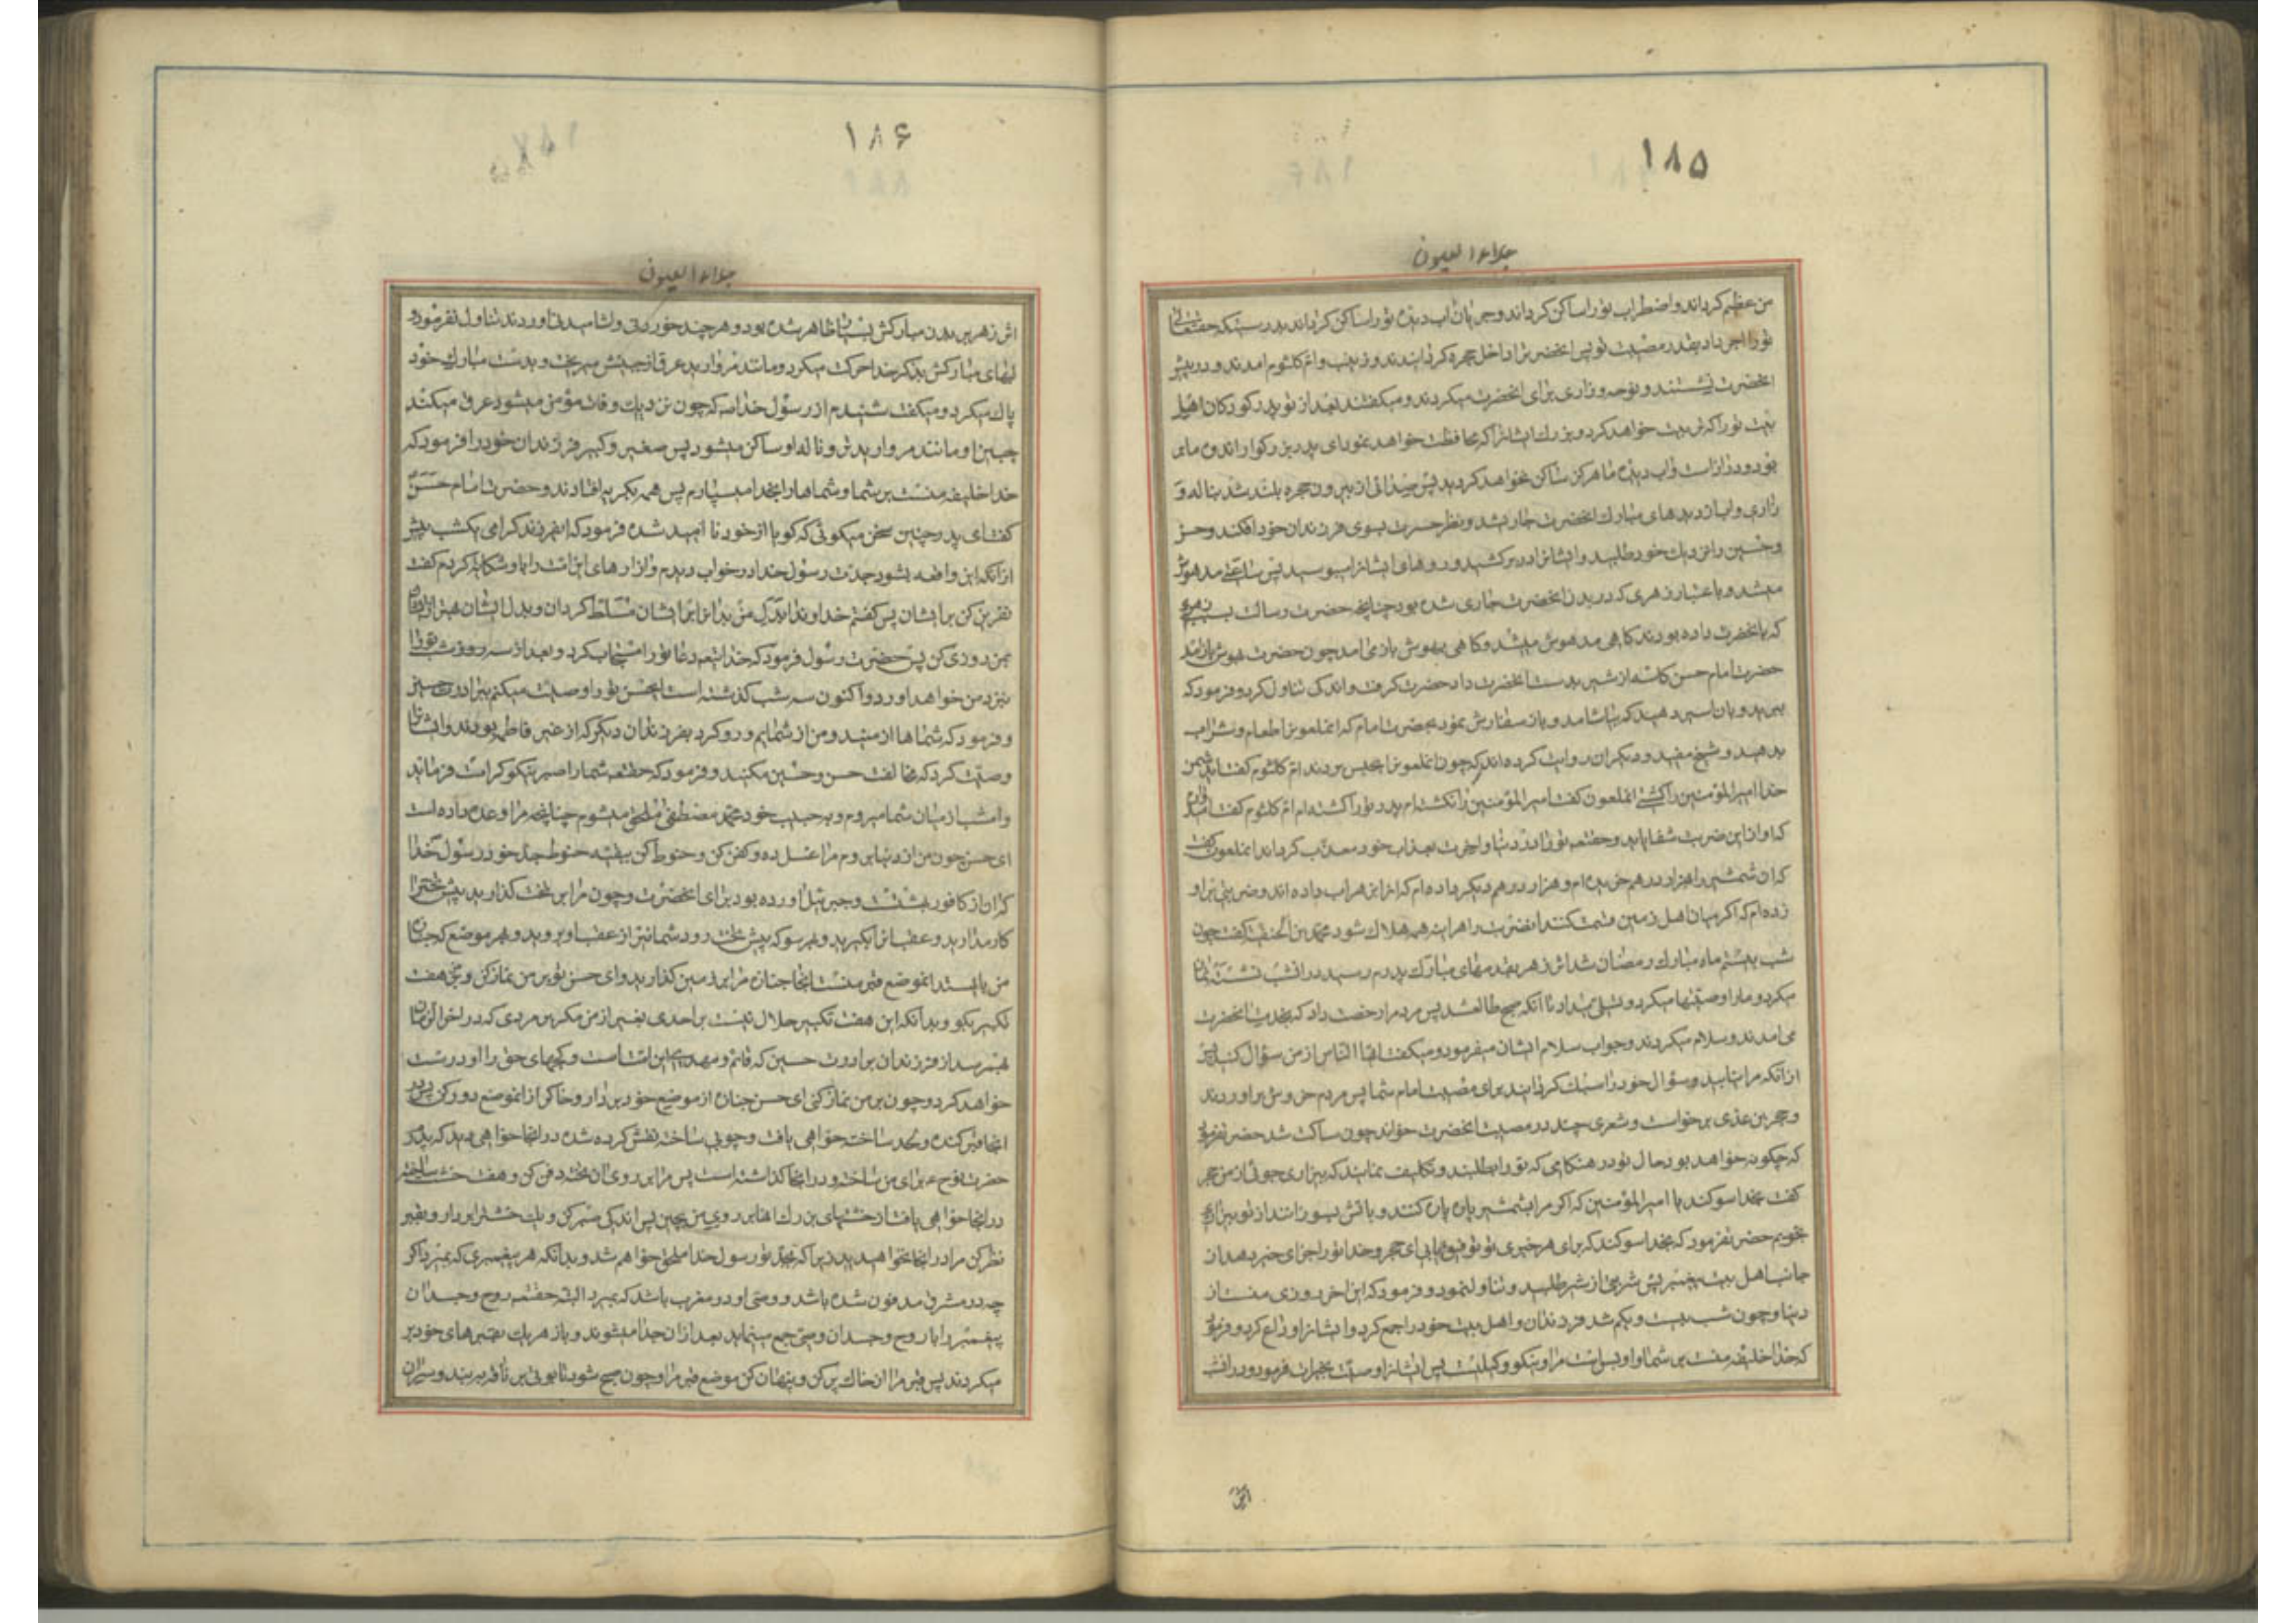 ۱۸۵
جلاء العیون
من عظیم کرداند و اضطراب تو را ساکن کرداند و جریان اب دیده تو را ساکن کرداند بدرستیکه حقتعالی
تو را اجر داد بقدر مصیبت تو پس انحضرت را داخل حجره کردانیدند و زینب و ام کلثوم امدند و در پیش
انحضرت نشستند و نوحه و زاری برای انحضرت میکردند و میکفتند بعد از تو بدر کودکان اهل
بیت تو را که تربیت خواهد کرد و بزرک ایشانرا که محافظت خواهد نمود ای پدر بزرکوار اندوه ما بر
تو دور و دراز است و اب دیده ما هرکز ساکن نخواهد کردید پس صدای از بیرون حجره بلند شد بناله و
زاری و اب از دیدهای مبارک انحضرت جاری شد و نظر حسرت بسوی فرزندان خود افکند و حسن
و حسین را نزدیک خود طلبید و ایشانرا در بر کشید و روهای ایشانرا بوسید پس ساعتی مدهوش
میشد و باعتبار زهری که در بدن انحضرت جاری شده بود چنانچه حضرت رسالت بسبب زهری
که بانحضرت داده بودند کاهی مدهوش میشد و کاهی بهوش باز می امد چون حضرت بهوش باز امد
حضرت امام حسن کاسه از شیر بدست انحضرت داد حضرت کرفت و اندکی تناول کرد و فرمود که
ببرید و بان اسیر دهید که بیاشامد و باز سفارش نمود بحضرت امام که انملعون را طعام و شراب
بدهید و شیخ مفید و دیکران روایت کرده اند که چون انملعون را بحبس بردند ام کلثوم کفت ای دشمن
خدا امیر المؤمنین را کشتی انملعون کفت امیر المؤمنین را نکشته ام پدر تو را کشته ام ام کلثوم کفت امید دارم
که او از این ضربت شفا یابد و حقتعه تو را در دنیا و اخرت بعذاب خود معذب کرداند انملعون کفت
که ان شمشیر را هزار درهم خریده ام و هزار درهم دیکر داده ام که انرا بزهر اب داده اند و ضربتی بر او
زده ام که اکر میان اهل زمین قسمت کنند انضربت را هراینه همه هلاک شود محمد بن الحنفیه کفت چون
شب بیستم ماه مبارک رمضان شد اثر زهر بقدمهای مبارک پدرم رسید در انشب نشسته نماز
میکرد و ما را وصیتها میکرد و تسلی میداد تا انکه صبح طالع شد پس مردم را رخصت داد که بخدمت انحضرت
می امدند و سلام میکردند و جواب سلام ایشان میفرمود و میکفت ایها الناس از من سؤال کنید پیش
از انکه مرا نیابید و سؤال خود را سبک کردانید برای مصیبت امام شما پس مردم خروش براوردند
و حجر بن عدی برخواست و شعری چند در مصیبت انحضرت خواند چون ساکت شد حضرت فرمود
که چکونه خواهد بود حال تو در هنکامی که تو را بطلبند و تکلیف نمایند که بیزاری جوئی از من حجر
کفت بخدا سوکند یا امیر المؤمنین که اکر مرا بشمشیر پاره پاره کنند و باتش بسوزانند از تو بیزاری
نجویم حضرت فرمود که بخدا سوکند که برای هر خیری تو توفیق یابی ای حجر و خدا تو را جزای خیر دهد از
جانب اهل بیت پیغمبر پس شربتی از شیر طلبید و تناول نمود و فرمود که این اخر روزی منست از
دنیا و چون شب بیست و یکم شد فرزندان و اهل بیت خود را جمع کرد و ایشانرا وداع کرد و فرمود
که خدا خلیفه منست بر شما و او بس است مرا و نیکو وکیلیست پس ایشانرا وصیت بخیرات فرمود و در انشب
اثر
۱۸۶
جلاء العیون
اثر زهر بر بدن مبارکش بسیار ظاهر شده بود و هر چند خوردنی و اشامیدنی اوردند تناول نفرمود و
لبهای مبارکش بذکر خدا حرکت میکرد و مانند مروارید عرق از جبینش میریخت و بدست مبارک خود
پاک میکرد و میکفت شنیدم از رسول خدا ص که چون نزدیک وفات مؤمن میشود عرق میکند
جبین او مانند مروارید تر و ناله او ساکن میشود پس صغیر و کبیر فرزندان خود را فرمود که
خدا خلیفه منست بر شما و شماها را بخدا میسپارم پس همه بکریه افتادند و حضرت امام حسن
کفت ای پدر چنین سخن میکوئی که کویا از خود نا امید شده فرمود که ایفرزند کرامی یکشب پیش
از انکه این واقعه بشود جدت رسول خدا در خواب دیدم و ازارهای این امت را باو شکایت کردم کفت
نفرین کن بر ایشان پس کفتم خداوندا بدل من بدانرا بر ایشان مسلط کردان و بدل ایشان بهتر از ایشان
بمن روزی کن پس حضرت رسول فرمود که خدایتعه دعا تو را مستجاب کرد و بعد از سه روز تو را
بنزد من خواهد اورد و اکنون سه شب کذشته است ایحسن تو را وصیت میکنم ببرادرت حسین
و فرمود که شماها از منید و من از شمایم و رو کرد بفرزندان دیکر که از غیر فاطمه بودند و ایشانرا
وصیت کرد که مخالفت حسن و حسین مکنید و فرمود که حقتعه شما را صبر نیکو کرامت فرماید
و امشب از میان شما میروم و بحبیب خود محمد مصطفی ملحق میشوم چنانچه مرا وعده داده است
ای حسن چون من از دنیا بروم مرا غسل ده و کفن کن و حنوط کن ببقیه حنوط جد خود رسول خدا
که ان از کافور بهشتست و جبرئیل اورده بود برای انحضرت و چون مرا بر تخت کذارید پیش تختر
کار مدارید و عقب انرا بکیرید و بهر سو که پیش تخت رود شما نیز از عقب او بروید و بهر موضع که جنازه
من بایستد انموضع قبر منست انجا جنازه مرا بر زمین کذارید و ای حسن تو بر من نماز کن و هفت
تکبیر بکو و بدانکه این هفت تکبیر حلال نیست بر احدی بغیر از من مکر بر مردی که در اخر الزمان
بهمرسد از فرزندان برادرت حسین که قائم و مهدی این امت است و کجیهای حق را او درست
خواهد کرد و چون بر من نماز کنی ای حسن جنازه از موضع خود بردار و خاک از انموضع دور کن پس
انجا قبر کنده و لحد ساخته خواهی یافت و چوبی ساخته نقش کرده شده در انجا خواهی دید که پدر
حضرت نوح ع برای من ساخته و در انجا کذاشته است پس مرا بر روی ان تخته دفن کن و هفت خشت ساخته
در انجا خواهی یافت از خشتهای بزرک انها بر روی من بچین پس اندکی صبر کن و یک خشت را بردار و بقبر
نظر کن مرا در انجا نخواهید دید زیرا که بجد تو رسول خدا ملحق خواهم شد و بدانکه هر پیغمبری که بمیرد اکر
چه در مشرق مدفون شده باشد و وصی او در مغرب باشد که بمیرد البته حقتعه روح و جسد ان
پیغمبر را با روح و جسد ان وصی جمع مینماید بعد از ان جدا میشوند و باز هر یک بقبرهای خود بر
میکردند پس قبر مرا از خاک پر کن و پنهان کن موضع قبر مرا و چون صبح شود تابوتی بر ناقه ببندید و بمیران